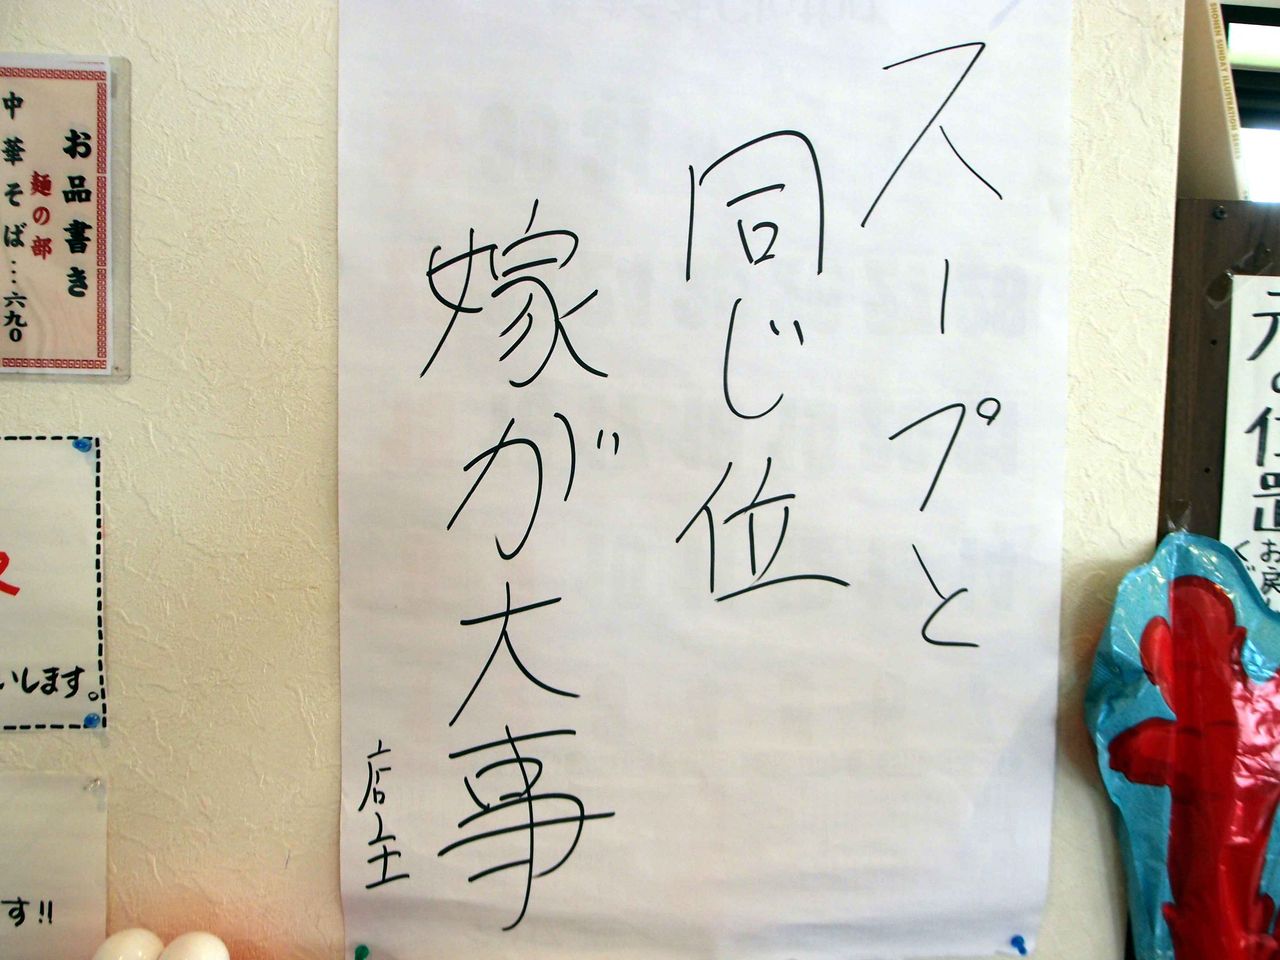 スープと
同じ位
嫁が大事
店主
お品書き
麺の部
中華そば‥‥六九〇
いします。
す!!
SHONEN SUNDAY ILLUSTRATION SERIES
元の位置